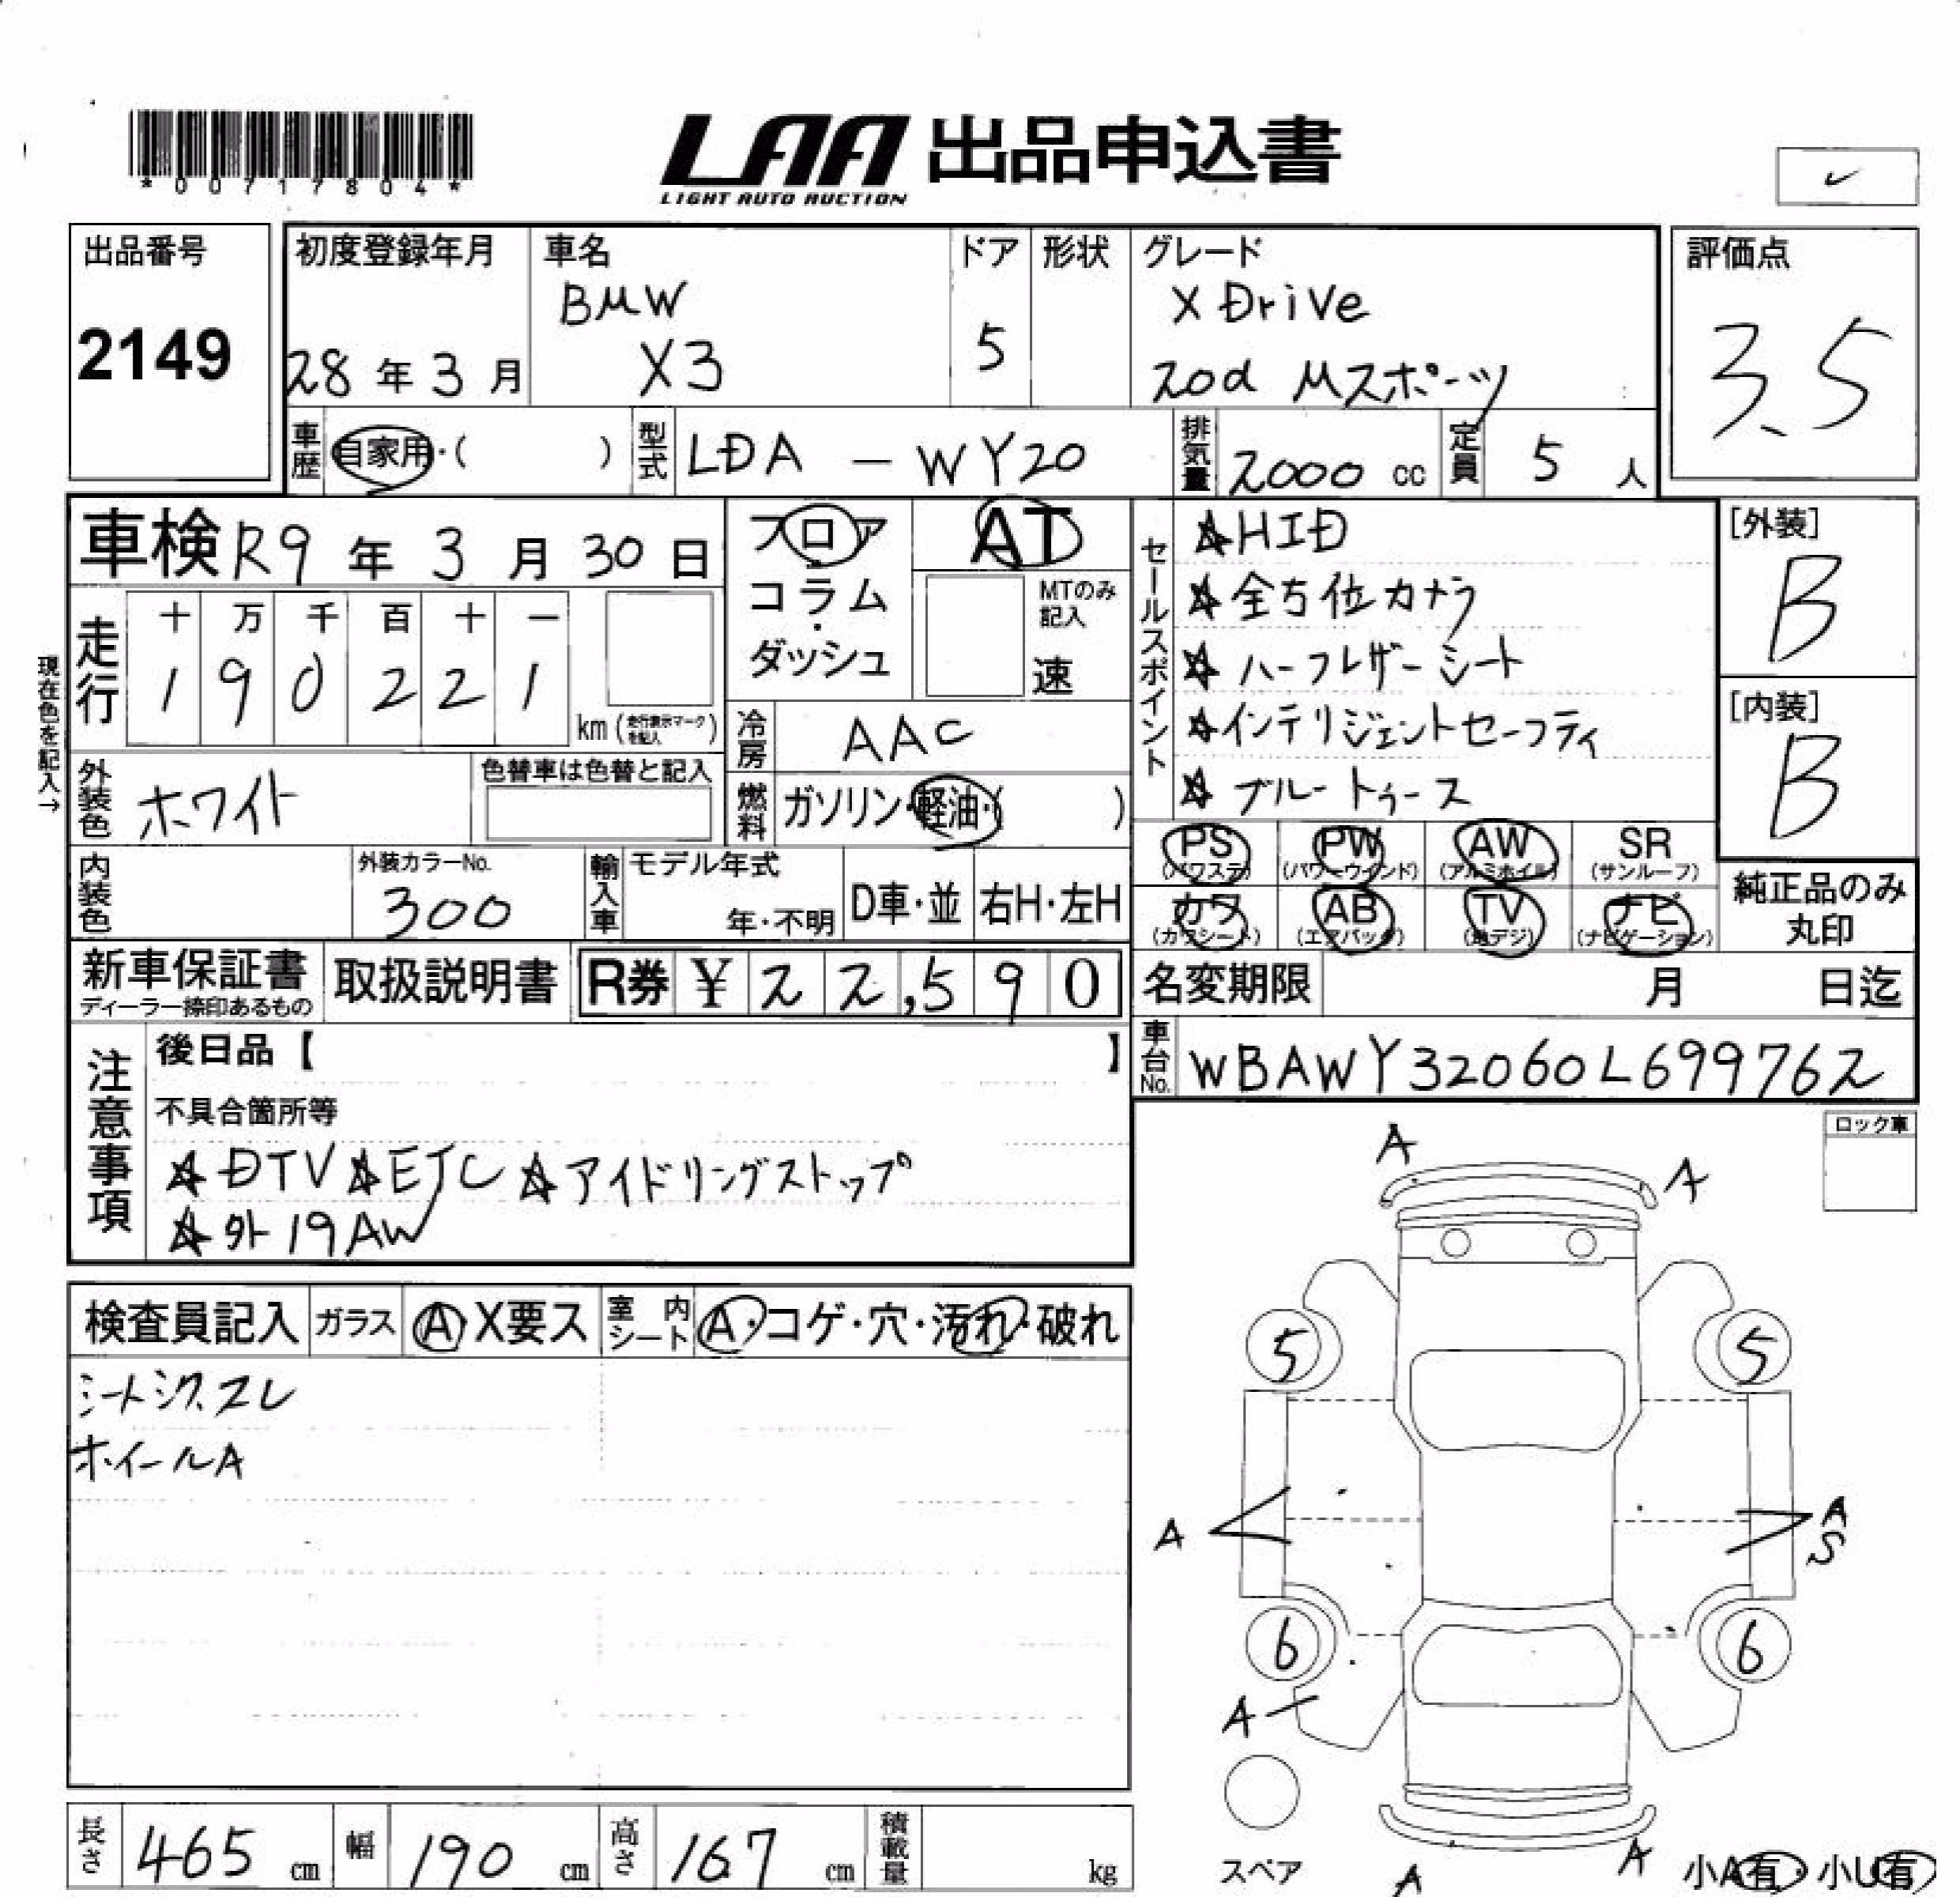 *00717804*
LAA 出品申込書
LIGHT AUTO AUCTION
出品番号
2149
初度登録年月
28年3月
車名
BMW
X3
ドア
5
形状
グレード
X Drive
20d Mスポーツ
評価点
3.5
車歴
自家用・( )
型式
LDA-WY20
排気量
2000cc
定員
5人
車検 R9年3月30日
フロア
・
コラム
・
ダッシュ
AT
MTのみ
記入
速
セールスポイント
☆HID
☆全方位カメラ
☆ハーフレザーシート
☆インテリジェントセーフティ
☆ブルートゥース
[外装]
B
[内装]
B
現在色を記入→
走行
十 万 千 百 十 一
1 9 0 2 2 1
km(走行表示マークを記入)
冷房
AAC
外装色
ホワイト
色替車は色替と記入
燃料
ガソリン・軽油・( )
PS
(パワステ)
PW
(パワーウインド)
AW
(アルミホイル)
SR
(サンルーフ)
カワ
(カワシート)
AB
(エアバッグ)
TV
(地デジ)
ナビ
(ナビゲーション)
純正品のみ
丸印
内装色
外装カラーNo.
300
輸入車
モデル年式
年・不明
D車・並
右H・左H
新車保証書
ディーラー捺印あるもの
取扱説明書
R券 ¥22,590
名変期限 月 日迄
車台No.
WBAWY32060L699762
注意事項
後日品【 】
不具合箇所等
☆DTV☆ETC☆アイドリングストップ
☆外19AW
ロック車
検査員記入
ガラス
A・X要ス
室内シート
A・コゲ・穴・汚れ・破れ
シートシワ、スレ
ホイールA
A
A
5
5
A
A
S
6
6
A
スペア
A
A
小A有・小U有
長さ
465cm
幅
190cm
高さ
167cm
積載量
kg